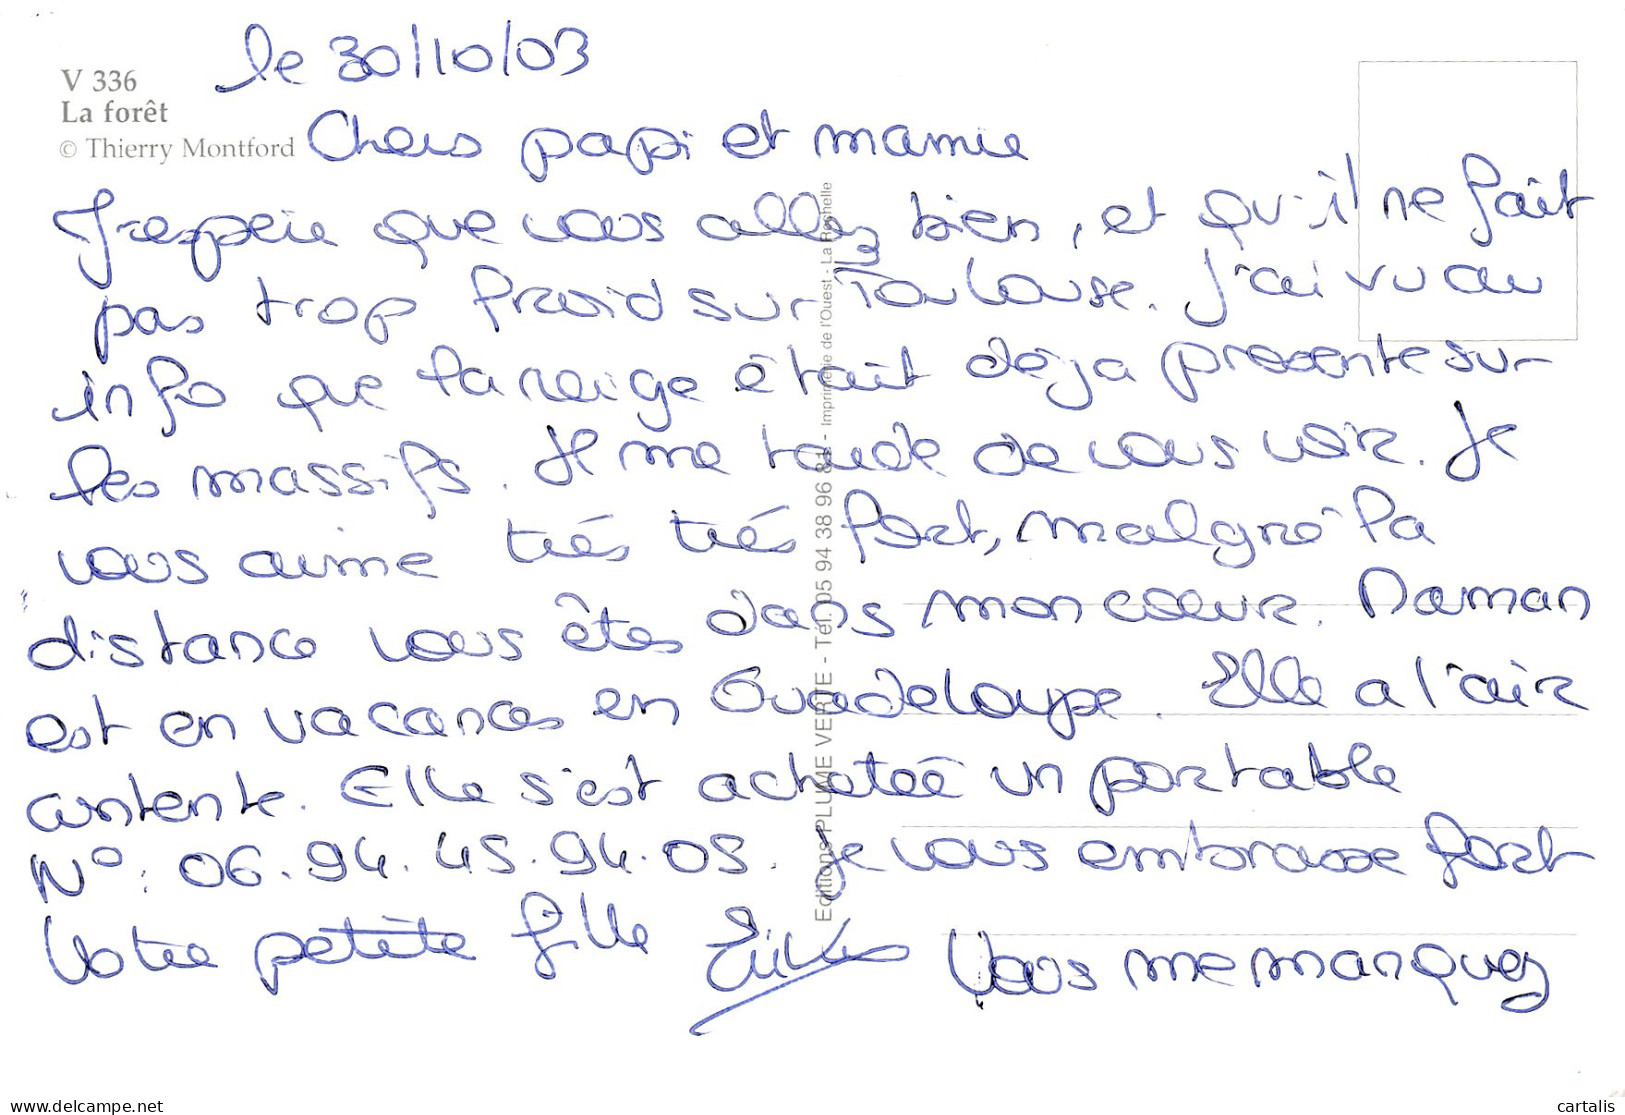 V 336
La forêt
© Thierry Montford
le 30/10/03
Chers papi et mamie
J'espère que vous allez bien, et qu'il ne fait
pas trop froid sur Toulouse. J'ai vu au
info que la neige était déja presente sur
les massifs. Je me tarde de vous voir. Je
vous aime trés trés fort, malgré la
distance vous êtes dans mon cœur. Maman
est en vacances en Guadeloupe. Elle a l'air
contente. Elle s'est acheteé un portable
N° : 06.94.45.94.05. Je vous embrasse fort
Votre petite fille
Vous me manquez
Editions PLUME VERTE - Tél. 05 94 38 96 84 - Imprimerie de l'Ouest - La Rochelle
www.delcampe.net
cartalis